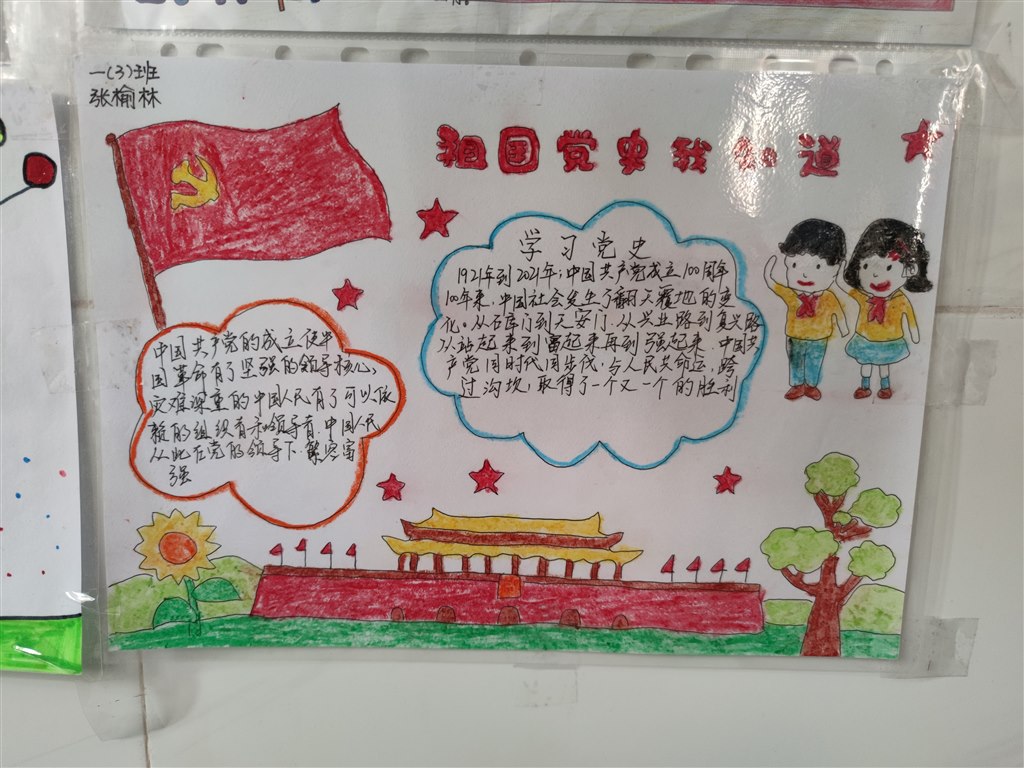 一(3)班
张榆林
祖国党史我知道
学习党史
1921年到2021年,中国共产党成立100周年
100年来,中国社会发生了翻天覆地的变
化。从石库门到天安门,从兴业路到复兴路
从站起来到富起来再到强起来,中国共
产党同时代同步伐,与人民共命运,跨
过沟坎,取得了一个又一个的胜利
中国共产党的成立使中
国革命有了坚强的领导核心,
灾难深重的中国人民有了可以依
赖的组织者和领导者,中国人民
从此在党的领导下,繁容富
强